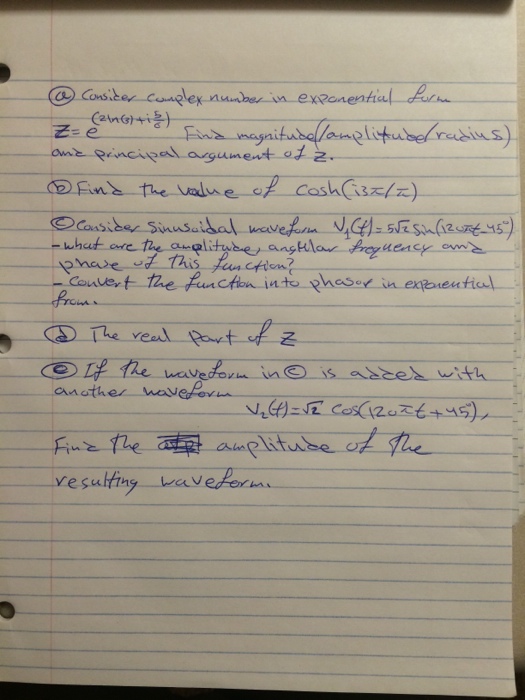 (a) Consider complex number in exponential form
z = e^(2ln(3)+i5/6) Find magnitude/(amplitude/radius)
and principal argument of z.
(b) Find the value of cosh(i3π/π)
(c) Consider sinusoidal waveform V₁(t) = 5√2 sin(120πt-45°)
- what are the amplitude, angular frequency and
phase of this function?
- Convert the function into phasor in exponential
from.
(d) The real part of z
(e) If the waveform in (c) is added with
another waveform
V₂(t) = √2 cos(120πt+45°),
Find the amplitude of the
resulting waveform.